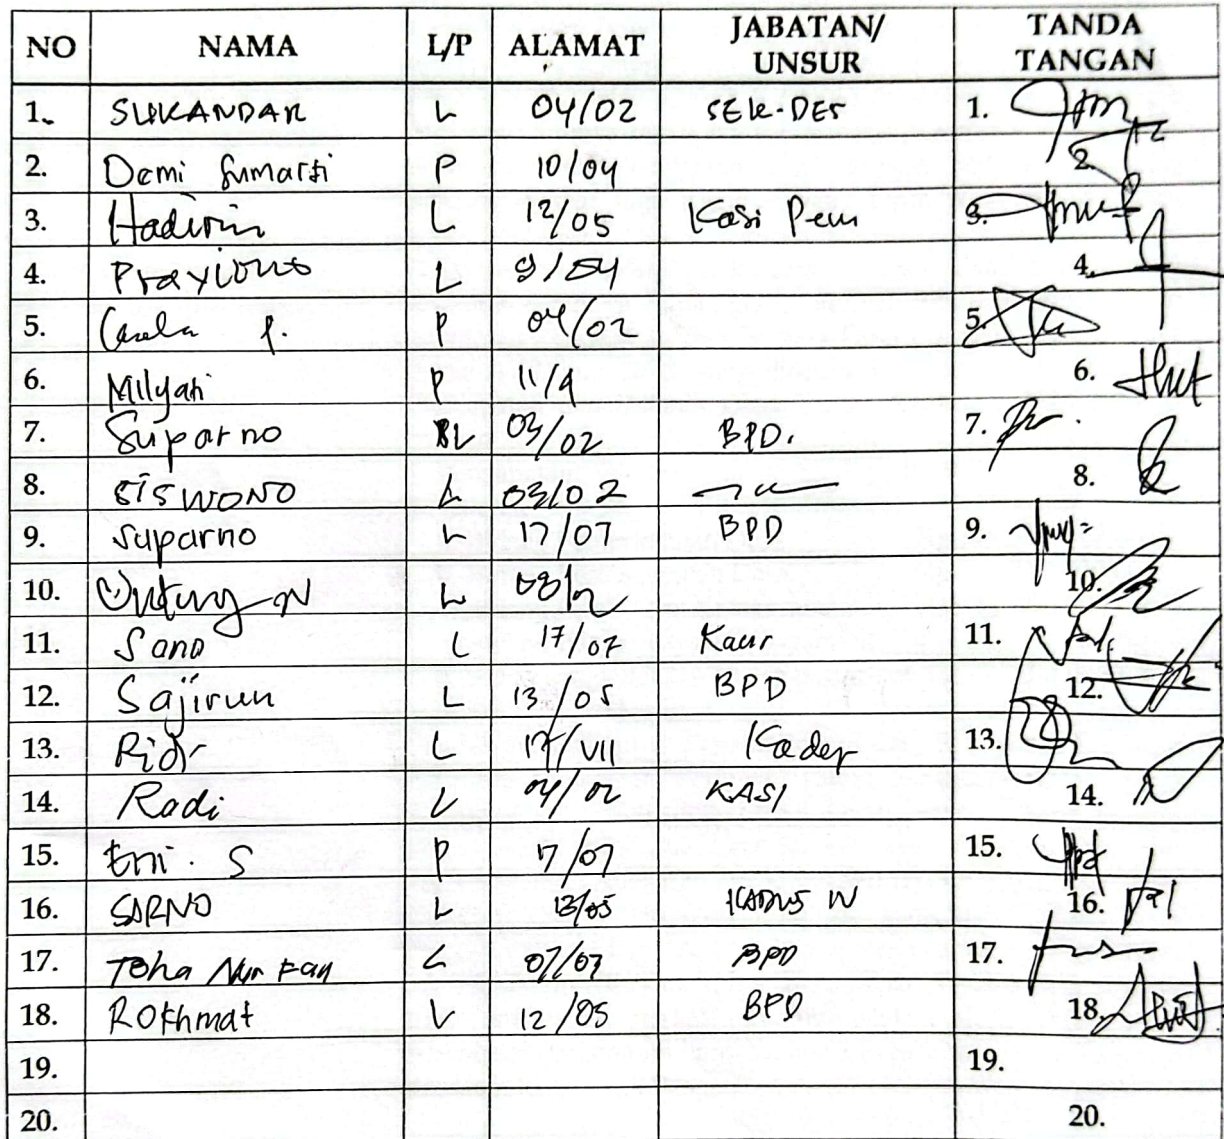 NO NAMA L/P ALAMAT JABATAN/ UNSUR TANDA TANGAN
1. SUKANDAR L 04/02 SEK-DES 1.
2. Demi Sumarti P 10/04 2.
3. Hadirin L 12/05 Kasi Pem 3.
4. Prayitno L 9/04 4.
5. P 04/02 5.
6. Milyati P 11/4 6.
7. Suparno L 03/02 BPD. 7.
8. SISWONO L 03/02 8.
9. Suparno L 17/07 BPD 9.
10. Untung N L 10.
11. Sano L 17/07 Kaur 11.
12. Sajirun L 13/05 BPD 12.
13. L 17/VII Kader 13.
14. Radi L 04/02 KASI 14.
15. Erni. S P 7/07 15.
16. SARNO L 13/05 KADUS IV 16.
17. Toha Nur L 07/07 BPD 17.
18. Rokhmat L 12/05 BPD 18.
19. 19.
20. 20.